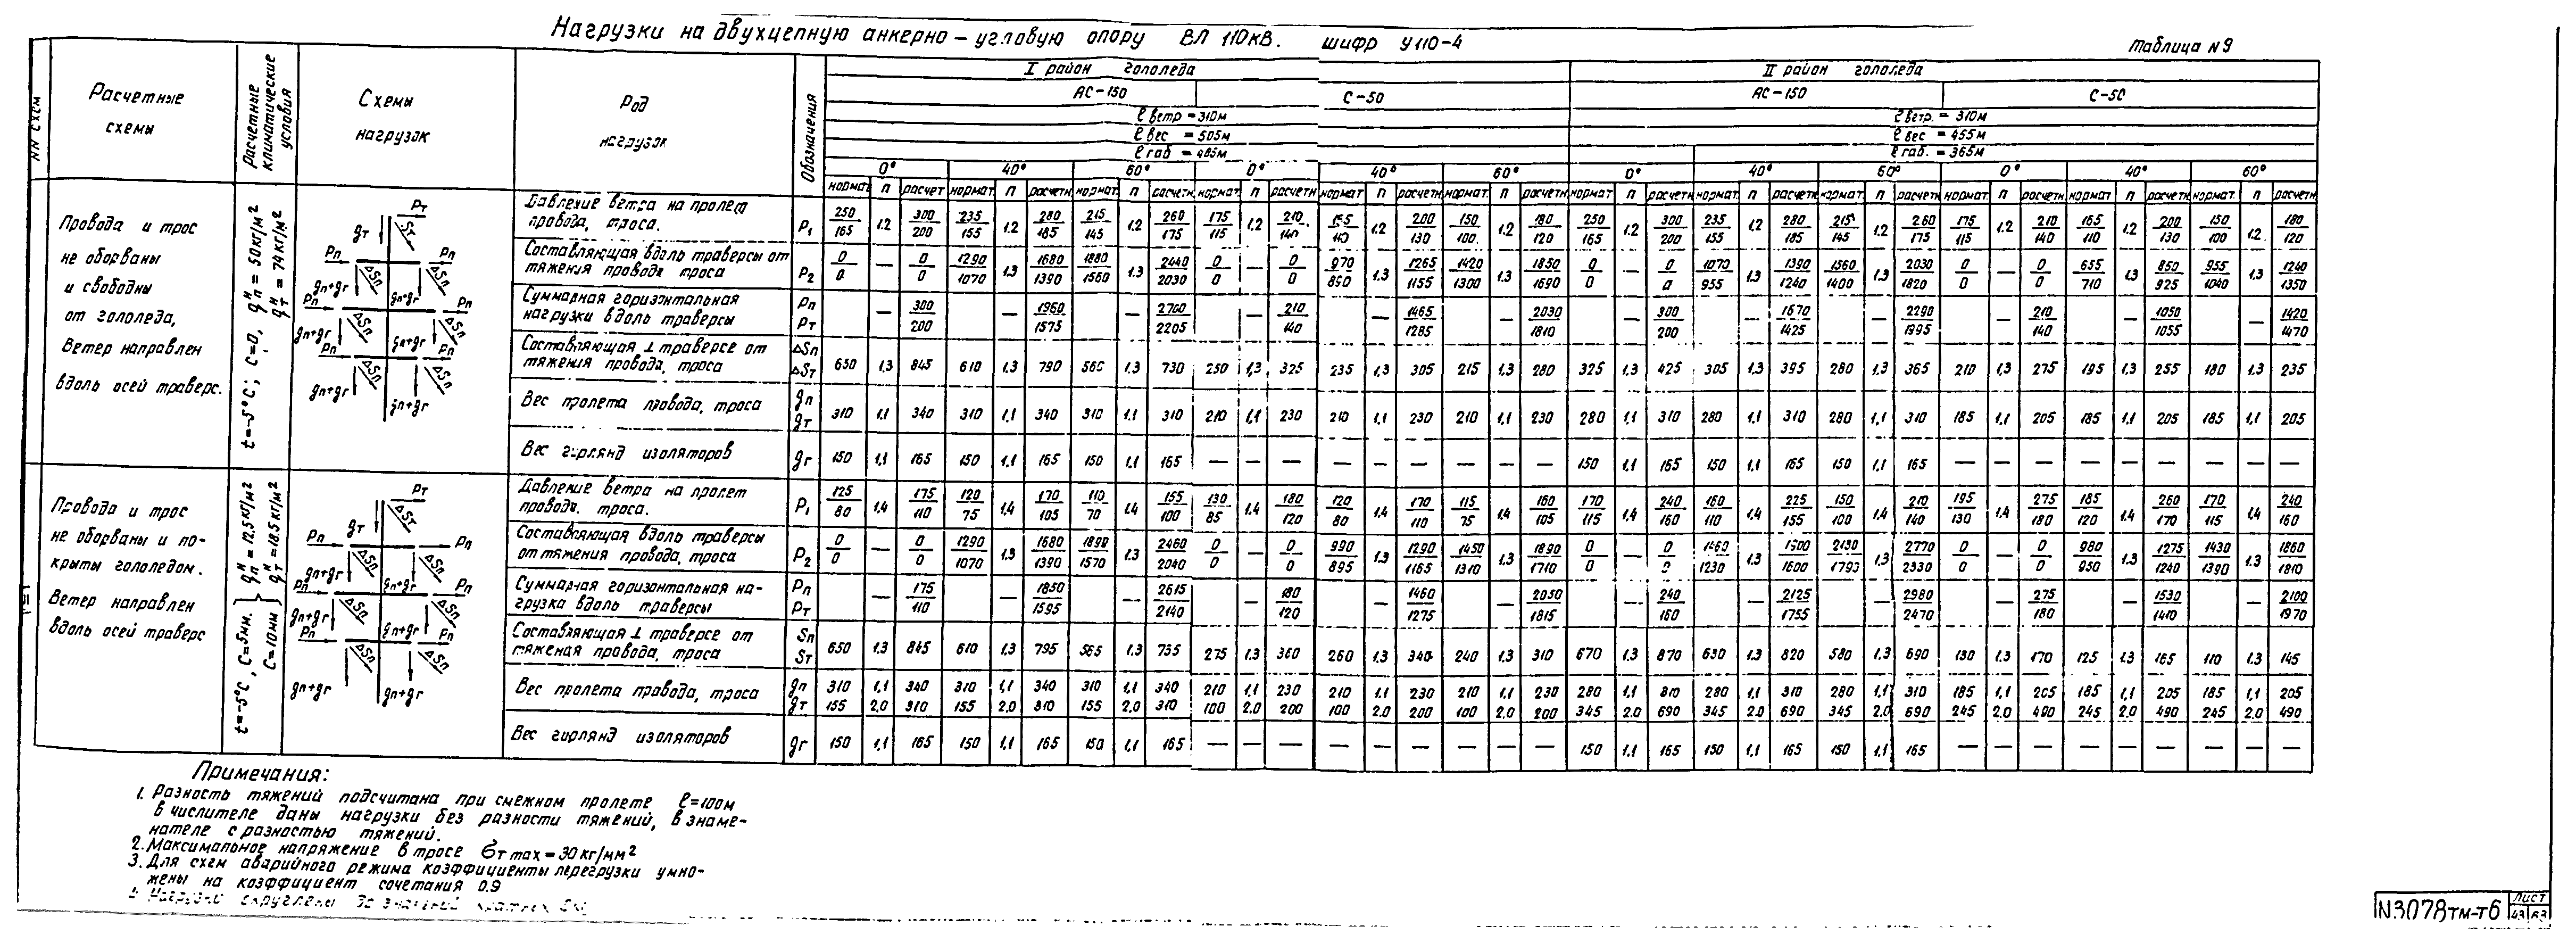 Нагрузки на двухцепную анкерно-угловую опору ВЛ 110кВ. шифр У110-4
Таблица N9
NN схем
Расчетные схемы
Расчетные климатические условия
Схемы нагрузок
Род нагрузок
Обозначения
I район гололеда
II район гололеда
АС-150 С-50 АС-150 С-50
ℓ ветр = 310м ℓ ветр. = 310м
ℓ вес = 505м ℓ вес = 455м
ℓ габ = 485м ℓ габ. = 365м
0° 40° 60° 0° 40° 60° 0° 40° 60° 0° 40° 60°
нормат п расчет нормат. п расчетн нормат. п расчетн нормат. п расчетн нормат. п расчетн нормат. п расчетн нормат. п расчетн нормат. п расчетн нормат. п расчетн нормат. п расчетн нормат. п расчетн нормат. п расчетн
Провода и трос
не оборваны
и свободны
от гололеда,
Ветер направлен
вдоль осей траверс.
t=-5°С; С=0, gпн = 50кг/м2
gтн = 74кг/м2
Давление ветра на пролет провода, троса. P1
250/165 1.2 300/200 235/155 1.2 280/185 215/145 1.2 260/175 175/115 1.2 210/140 1.2 200/130 150/100 1.2 180/120 250/165 1.2 300/200 235/155 1.2 280/185 215/145 1.2 260/175 175/115 1.2 210/140 165/110 1.2 200/130 150/100 1.2 180/120
Составляющая вдоль траверсы от тяжения провода троса P2
0/0 — 0/0 1290/1070 1.3 1680/1390 1880/1560 1.3 2440/2030 0/0 — 0/0 970/890 1.3 1265/1155 1420/1300 1.3 1850/1690 0/0 — 0/0 1070/955 1.3 1390/1240 1560/1400 1.3 2030/1820 0/0 — 0/0 655/710 1.3 850/925 955/1040 1.3 1240/1350
Суммарная горизонтальная нагрузки вдоль траверсы Pп Pт
— 300/200 — 1960/1575 — 2700/2205 — 210/140 — 1465/1285 — 2030/1810 — 300/200 — 1670/1425 — 2290/1995 — 210/140 — 1050/1055 — 1420/1470
Составляющая ⊥ траверсе от тяжения провода, троса ΔSп ΔSт
650 1.3 845 610 1.3 790 560 1.3 730 250 1.3 325 235 1.3 305 215 1.3 280 325 1.3 425 305 1.3 395 280 1.3 365 210 1.3 275 195 1.3 255 180 1.3 235
Вес пролета провода, троса gп gт
310 1.1 340 310 1.1 340 310 1.1 310 210 1.1 230 210 1.1 230 210 1.1 230 280 1.1 310 280 1.1 310 280 1.1 310 185 1.1 205 185 1.1 205 185 1.1 205
Вес гирлянд изоляторов gг
150 1.1 165 150 1.1 165 150 1.1 165 — — — — — — — — — 150 1.1 165 150 1.1 165 150 1.1 165 — — — — — — — — —
Провода и трос
не оборваны и по-
крыты гололедом.
Ветер направлен
вдоль осей траверс
t=-5°С, С=5мм. С=10мм } gпн = 12.5кг/м2
gтн = 18.5кг/м2
Давление ветра на пролет провода, троса. P1
125/80 1.4 175/110 120/75 1.4 170/105 110/70 1.4 155/100 130/85 1.4 180/120 120/80 1.4 170/110 115/75 1.4 160/105 170/115 1.4 240/160 160/110 1.4 225/155 150/100 1.4 210/140 195/130 1.4 275/180 185/120 1.4 260/170 170/115 1.4 240/160
Составляющая вдоль траверсы от тяжения провода, троса P2
0/0 — 0/0 1290/1070 1.3 1680/1390 1890/1570 1.3 2460/2040 0/0 — 0/0 990/895 1.3 1290/1165 1450/1310 1.3 1890/1710 0/0 — 0/0 1460/1230 1.3 1900/1600 2130/1790 1.3 2770/2330 0/0 — 0/0 980/950 1.3 1275/1240 1430/1390 1.3 1860/1810
Суммарная горизонтальная на-грузка вдоль траверсы Pп Pт
— 175/110 — 1850/1595 — 2615/2140 — 180/120 — 1460/1275 — 2050/1815 — 240/160 — 2125/1755 — 2980/2470 — 275/180 — 1530/1410 — 2100/1970
Составляющая ⊥ траверсе от тяжения провода, троса Sп Sт
650 1.3 845 610 1.3 795 565 1.3 735 275 1.3 360 260 1.3 340 240 1.3 310 670 1.3 870 630 1.3 820 580 1.3 690 130 1.3 170 125 1.3 165 110 1.3 145
Вес пролета провода, троса gп gт
310 1.1 340 310 1.1 340 310 1.1 340 210 1.1 230 210 1.1 230 210 1.1 230 280 1.1 310 280 1.1 310 280 1.1 310 185 1.1 205 185 1.1 205 185 1.1 205
155 2.0 310 155 2.0 310 155 2.0 310 100 2.0 200 100 2.0 200 100 2.0 200 345 2.0 690 345 2.0 690 345 2.0 690 245 2.0 490 245 2.0 490 245 2.0 490
Вес гирлянд изоляторов gг
150 1.1 165 150 1.1 165 150 1.1 165 — — — — — — — — — 150 1.1 165 150 1.1 165 150 1.1 165 — — — — — — — — —
Примечания:
1. Разность тяжений подсчитана при смежном пролете ℓ=100м
в числителе даны нагрузки без разности тяжений, в знаме-
нателе с разностью тяжений.
2. Максимальное напряжение в тросе бт max = 30кг/мм2
3. Для схем аварийного режима коэффициенты перегрузки умно-
жены на коэффициент сочетания 0.9
4. Нагрузки округлены до значений кратных
N3078тм-т6
Лист
43 63